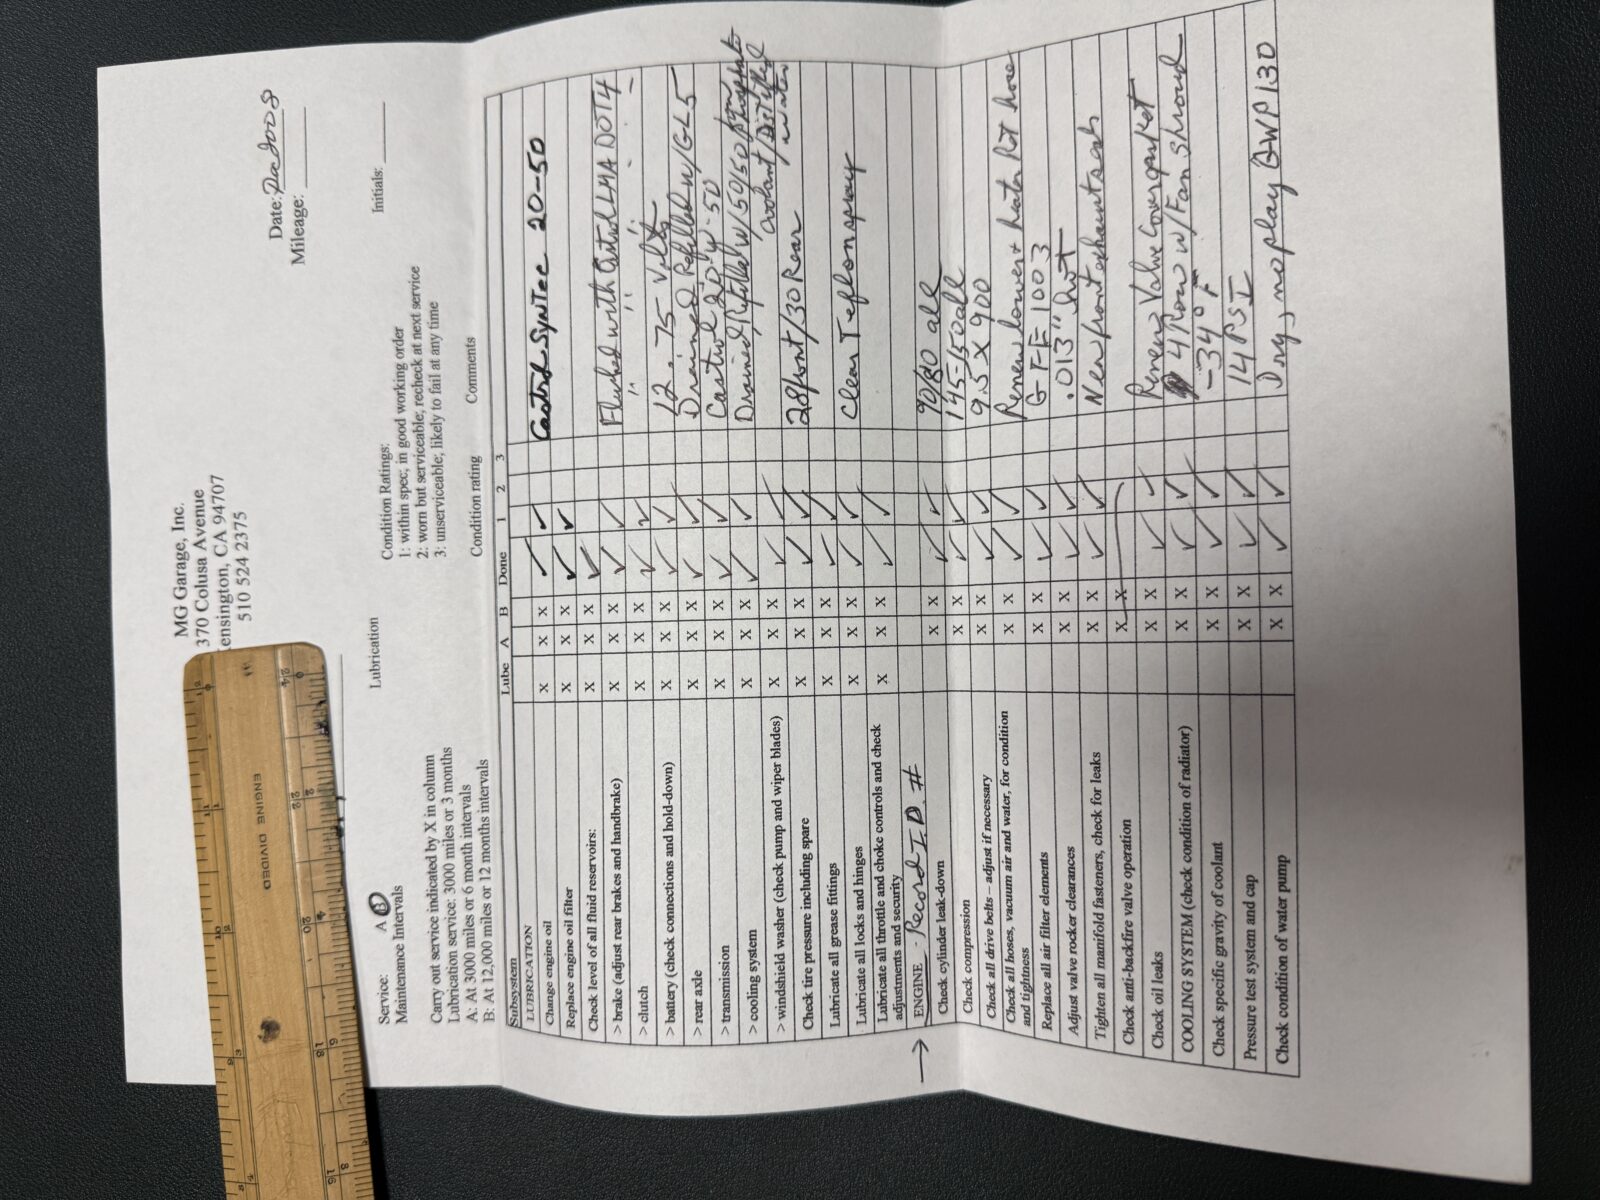 MG Garage, Inc.
370 Colusa Avenue
ensington, CA 94707
510 524 2375
Date: Dec 2008
Mileage:
Service: A B
Lubrication
Condition Ratings:
Initials:
Maintenance Intervals
1: within spec; in good working order
2: worn but serviceable; recheck at next service
3: unserviceable; likely to fail at any time
Carry out service indicated by X in column
Lubrication service: 3000 miles or 3 months
A: At 3000 miles or 6 month intervals
B: At 12,000 miles or 12 months intervals
Condition rating Comments
Subsystem Lube A B Done 1 2 3
LUBRICATION
Change engine oil X X X ✓ ✓ Castrol Syntec 20-50
Replace engine oil filter X X X ✓ ✓
Check level of all fluid reservoirs: X X X ✓
> brake (adjust rear brakes and handbrake) X X X ✓ ✓ Flushed with Castrol LMA DOT4
> clutch X X X ✓ ✓ " " " " "
> battery (check connections and hold-down) X X X ✓ ✓ 12.75 Volts
> rear axle X X X ✓ ✓ Drained Refilled w/GL5
> transmission X X X ✓ ✓ Castrol 20w-50
> cooling system X X X ✓ ✓ Drained/Refilled w/50/50 non phosphate coolant/Distilled water
> windshield washer (check pump and wiper blades) X X X ✓ ✓
Check tire pressure including spare X X X ✓ ✓ 28front/30 Rear
Lubricate all grease fittings X X X ✓ ✓
Lubricate all locks and hinges X X X ✓ ✓ clear Teflon spray
Lubricate all throttle and choke controls and check X X X ✓ ✓
adjustments and security
→ ENGINE - Record I.D. #
Check cylinder leak-down X X ✓ ✓ 90/80 all
Check compression X X ✓ ✓ 145-150 all
Check all drive belts – adjust if necessary X X ✓ ✓ 9.5 X 900
Check all hoses, vacuum air and water, for condition X X ✓ ✓ Renew lower + heater hot hose
and tightness
Replace all air filter elements X X ✓ ✓ GFE 1003
Adjust valve rocker clearances X X ✓ ✓ .013" hot
Tighten all manifold fasteners, check for leaks X X ✓ ✓ New front exhaust seals
Check anti-backfire valve operation X X
Check oil leaks X X ✓ ✓ Renew Valve Cover gasket
COOLING SYSTEM (check condition of radiator) X X ✓ ✓ 4 Row w/Fan Shroud
Check specific gravity of coolant X X ✓ ✓ -34° F
Pressure test system and cap X X ✓ ✓ 14 PSI
Check condition of water pump X X ✓ ✓ Dry, no play GWP130
ENGINE DIVIDED